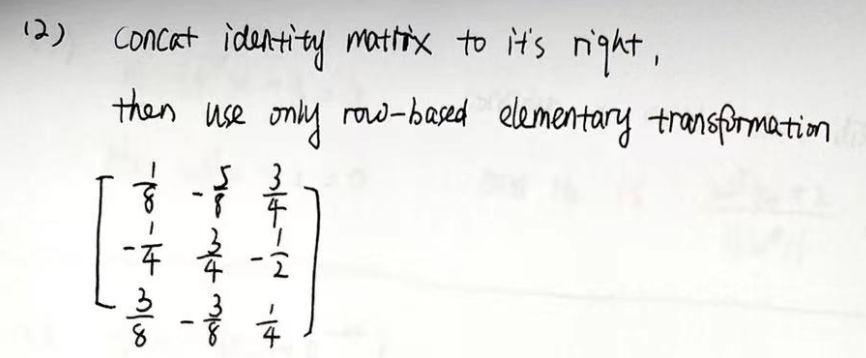 (2) concat identity matrix to it's right,
then use only row-based elementary transformation
1/8 -5/8 3/4
-1/4 3/4 -1/2
3/8 -3/8 1/4